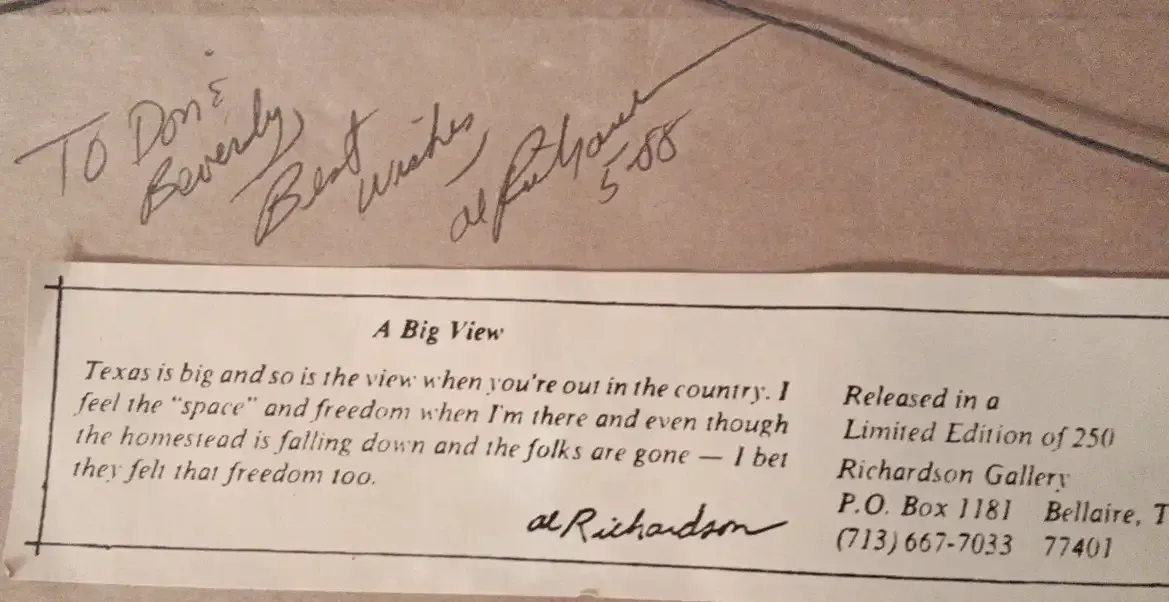 TO Don &
Beverly,
Best
Wishes
al Richardson
5-88
A Big View
Texas is big and so is the view when you're out in the country. I
feel the "space" and freedom when I'm there and even though
the homestead is falling down and the folks are gone — I bet
they felt that freedom too.
al Richardson
Released in a
Limited Edition of 250
Richardson Gallery
P.O. Box 1181 Bellaire, T
(713) 667-7033 77401